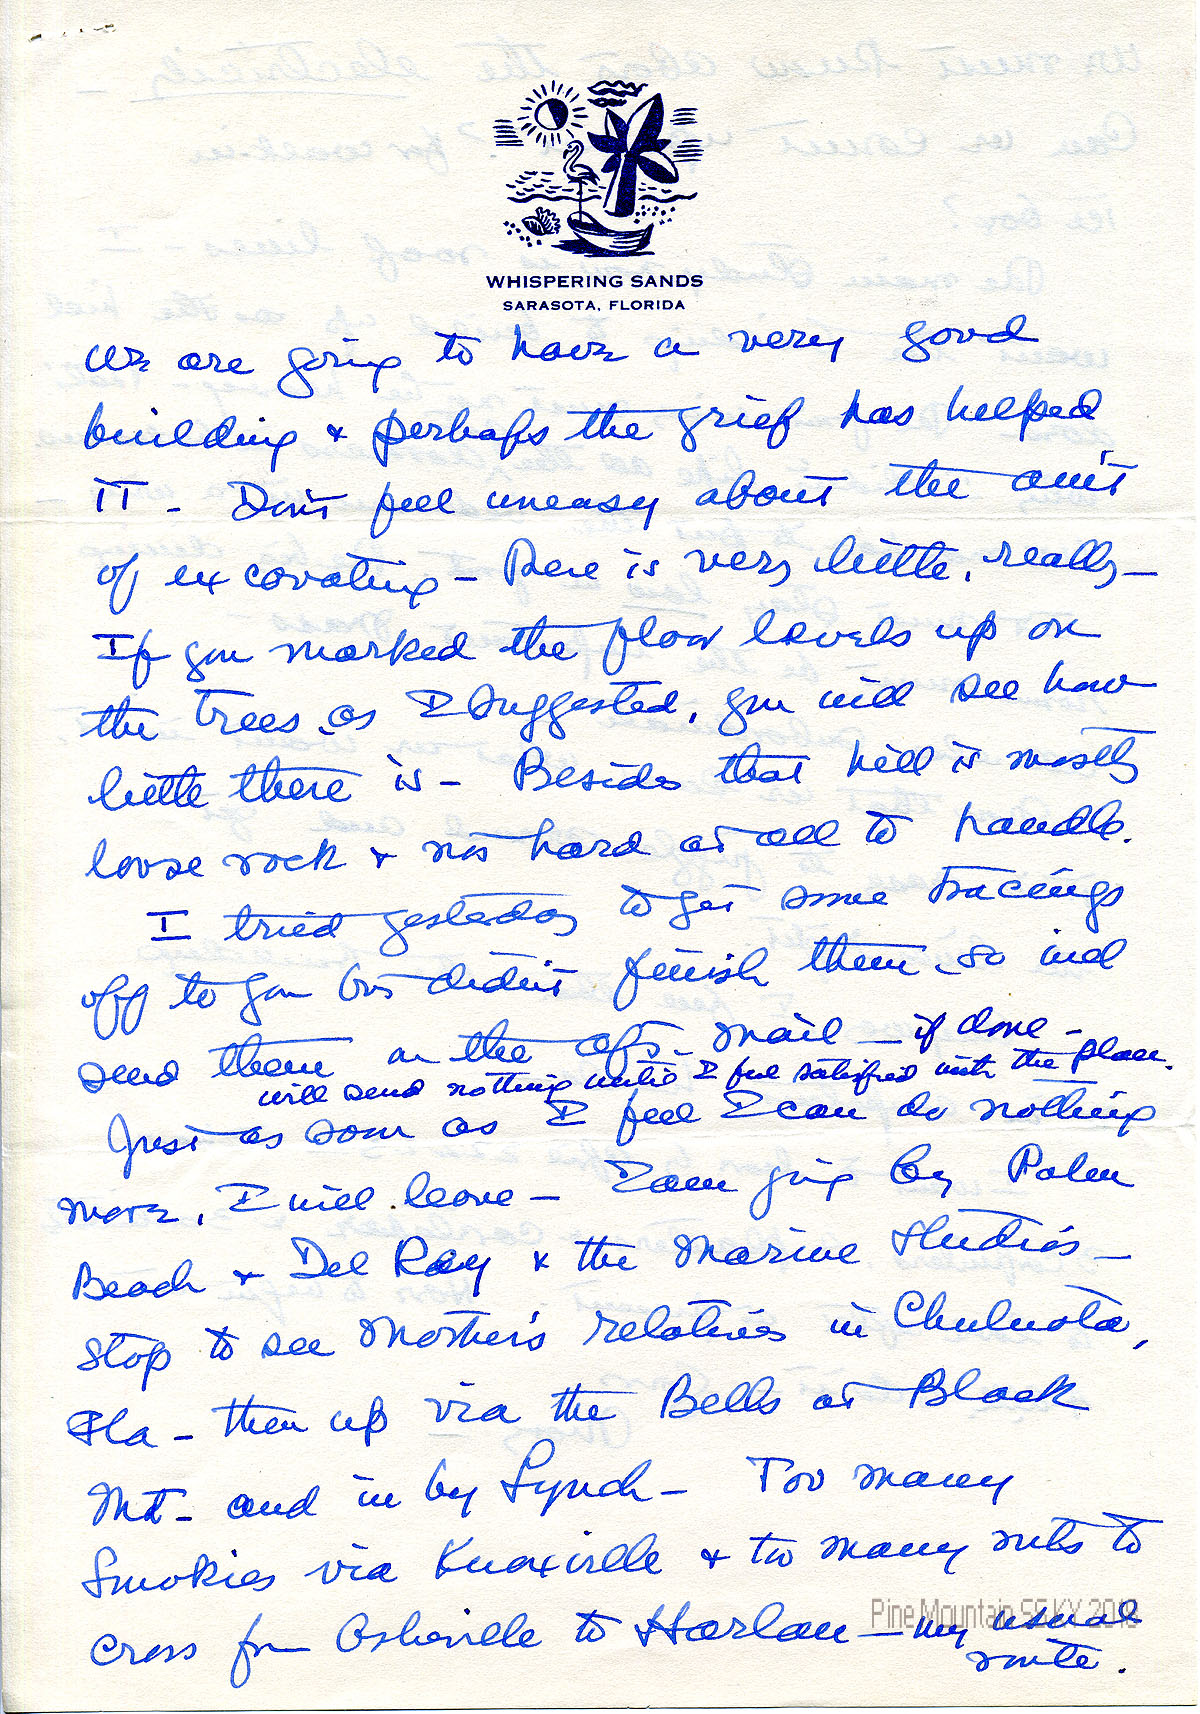 WHISPERING SANDS
SARASOTA, FLORIDA
We are going to have a very good
building & perhaps the grief has helped
IT - Don't feel uneasy about the am't
of excavating - there is very little, really -
If you marked the floor levels up on
the trees as I suggested, you will see how
little there is - Besides that hill is mostly
loose rock & not hard at all to handle.
I tried yesterday to get some tracings
off to you but didn't finish them, so will
send them on the aft. mail - if done -
will send nothing until I feel satisfied with the plan.
Just as soon as I feel I can do nothing
more, I will leave - I am going by Palm
Beach & Del Ray & the Marine Studios -
stop to see Mother's relatives in Chuluota,
Fla - then up via the Bells at Black
Mt - and in by Lynch - Too many
Smokies via Knoxville & too many mts to
cross from Asheville to Harlan - my usual
route.
Pine Mountain SS KY 2018